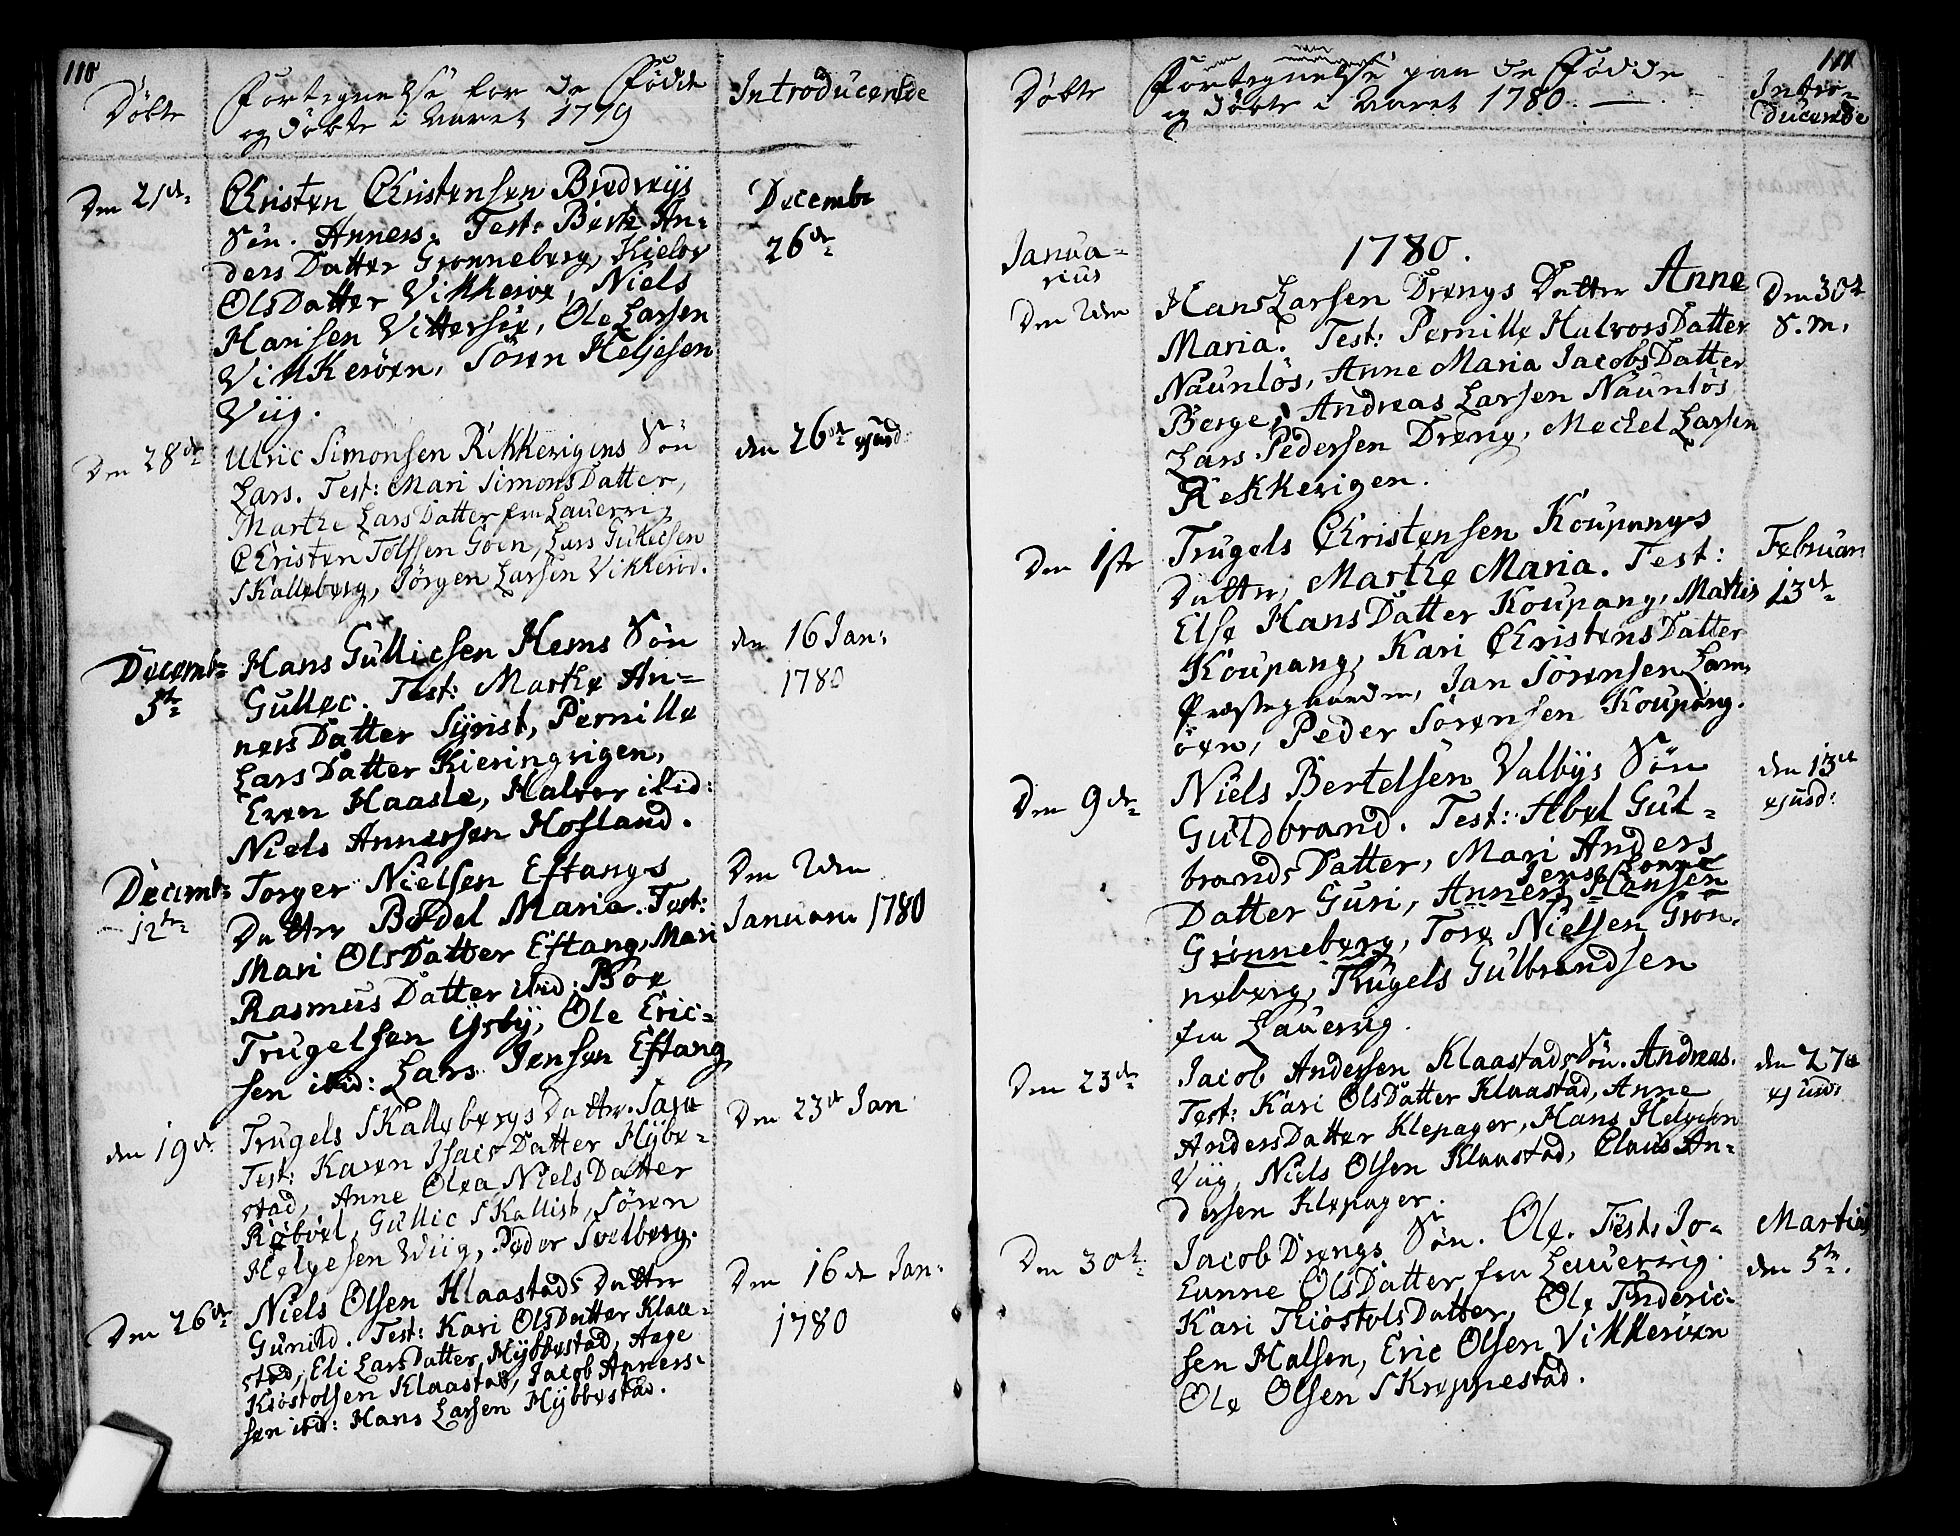 110
Døbte
Fortegnelse for de Fødde
og døbte i Aaret 1779
Introducerede
Den 21de
Christen Christensen Bredveys
Søn. Anners. Test: Berte An-
ders Datter Grønneberg, Kielov
Ols Datter Vikkerøe, Niels
Hansen Vittersøe, Ole Larsen
Vikkerøen, Søren Heljesen
Viig.
Decembr
26de
Den 28de
Ulric Simonsen Rekkevigens Søn
Lars. Test: Mari Simons Datter,
Marthe Lars Datter fra Lauervig
Christen Tolfsen Goen, Lars Gulicsen
Skalleberg, Jørgen Larsen Vikkerød.
den 26de ejusd:
Decembr
5te
Hans Gullicsen Hems Søn
Gullec. Test: Marthe An-
ners Datter Syrist, Pernille
Lars Datter Kieringvigen,
Even Haasle, Halvor ibid:
Niels Annersen Hofland.
den 16 Jan:
1780
Decembr
12te
Torger Nielsen Eftangs
Datter Bodel Marie. Test:
Mari Ols Datter Eftang, Mari
Rasmus Datter ibid: Boe
Trugelsen Ysby, Ole Eric-
sen ibid: Lars Jensen Eftang
Den 2den
Januari 1780
den 19de
Trugels Skallebergs Datter Sara
Test: Karen Isacs Datter Hybbe-
stad, Anne Olea Niels Datter
Røbøel, Gullic Skallist, Søren
Helgesen Wiig, Peder Soelberg.
Den 23de Jan
Den 26de
Niels Olsen Klaastads Datter
Gunild. Test: Kari Ols Datter Klaa-
stad, Eli Lars Datter Hybbestad, Aage
Kiøstolsen Klaastad, Jacob Anners-
sen ibid: Hans Larsen Hybbestad.
Den 16de Jan:
1780
111
Døbte
Fortegnelse paa de Fødde
og døbte i Aaret 1780.
Intro-
ducerede
Janua-
rius
1780.
Den 2den
Hans Larsen Drengs Datter Anne
Maria. Test: Pernille Halvors Datter
Naunløs, Anne Maria Jacobs Datter
Berge, Andreas Larsen Naunløs
Lars Pedersen Dreng, Mechel Larsen
Rekkevigen.
Den 30te
S. m.
Den 1ste
Trugels Christensen Koupangs
Datter, Marthe Maria. Test:
Else Hans Datter Koupang, Mathis
Koupang, Kari Christens Datter
Præstegaarden, Jan Sørensen Lam-
øen, Peder Sørensen Koupang.
Februari
13de
Den 9de
Niels Bertelsen Valbys Søn
Guldbrand. Test: Abel Gul-
brands Datter, Mari Anders
Datter Guri, Anners Hansen
Grønneberg, Tore Nielsen Grøn-
neberg, Trugels Gulbrandsen
fra Lauervig.
den 13de
ejusd:
Den 23de
Jacob Andersen Klaastads Søn. Andreas.
Test: Kari Ols Datter Klaastad, Anne
Anders Datter Klepager, Hans Helgesen
Viig, Niels Olsen Klaastad, Claus An-
dersen Klepager.
den 27de
ejusd:
Den 30te
Jacob Drengs Søn. Ole. Test: Jo-
hanne Ols Datter fra Lauervig.
Kari Kiøstols Datter, Ole Frideric-
sen Halsen, Eric Olsen Vikkerøen
Ole Olsen Skreppestad.
Martius
den 5te.